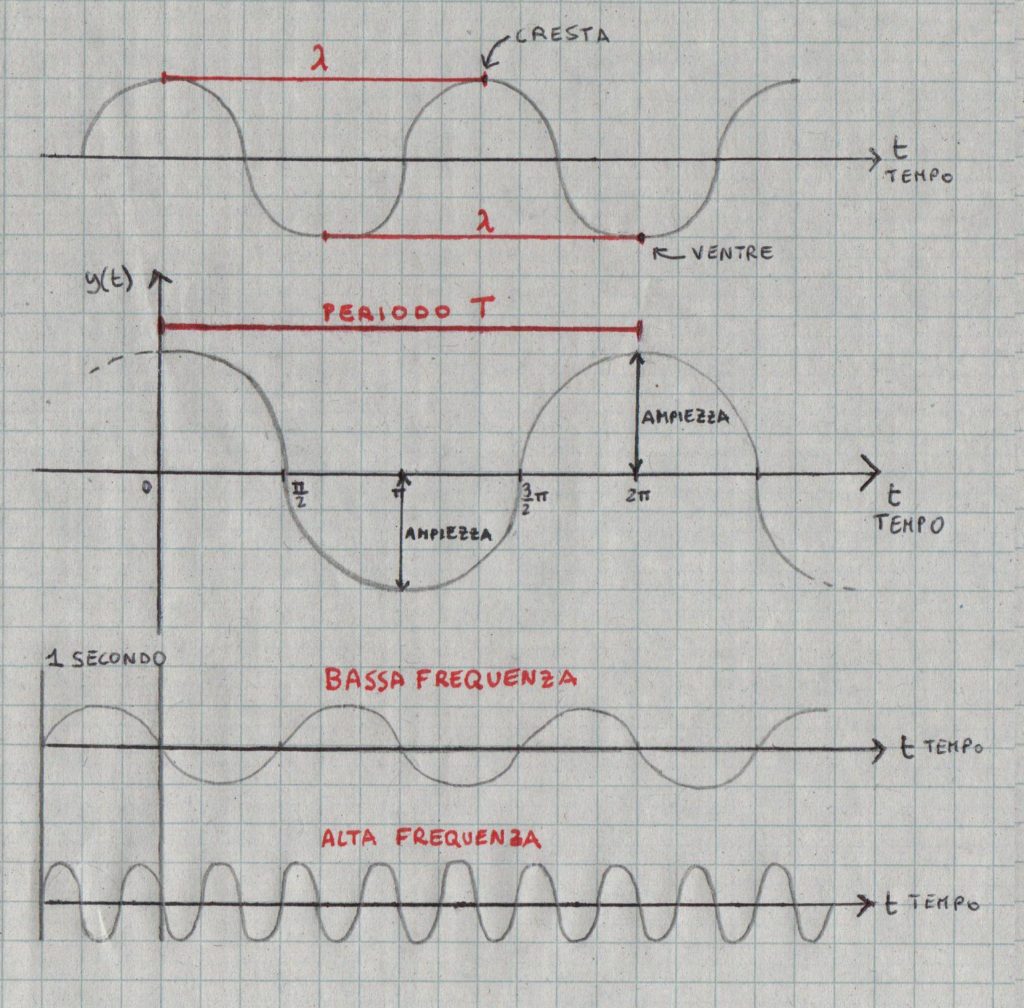 λ
CRESTA
t
TEMPO
λ
VENTRE
y(t)
PERIODO T
AMPIEZZA
0
π/2
π
3/2 π
2π
t
TEMPO
AMPIEZZA
1 SECONDO
BASSA FREQUENZA
t TEMPO
ALTA FREQUENZA
t TEMPO